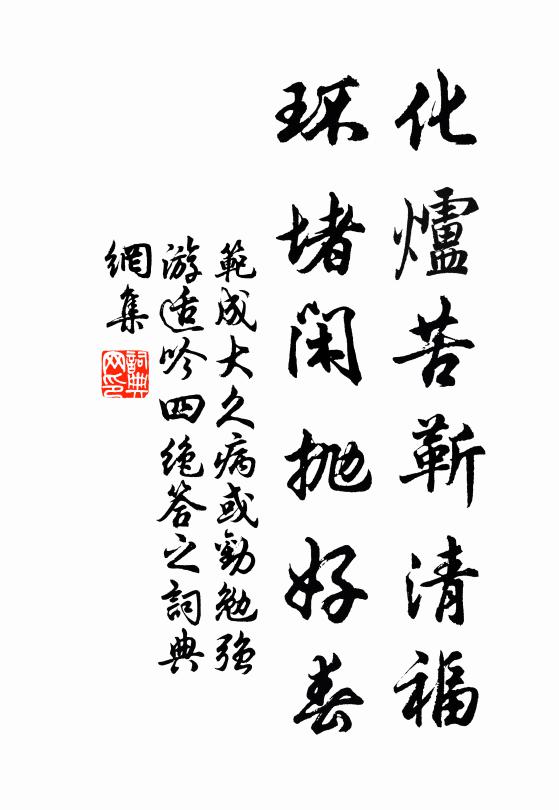 化爐苦靳清福
环堵閑抛好春
範成大久病或勸勉強
游适吟四絶答之詞典
網集
詞典
网印